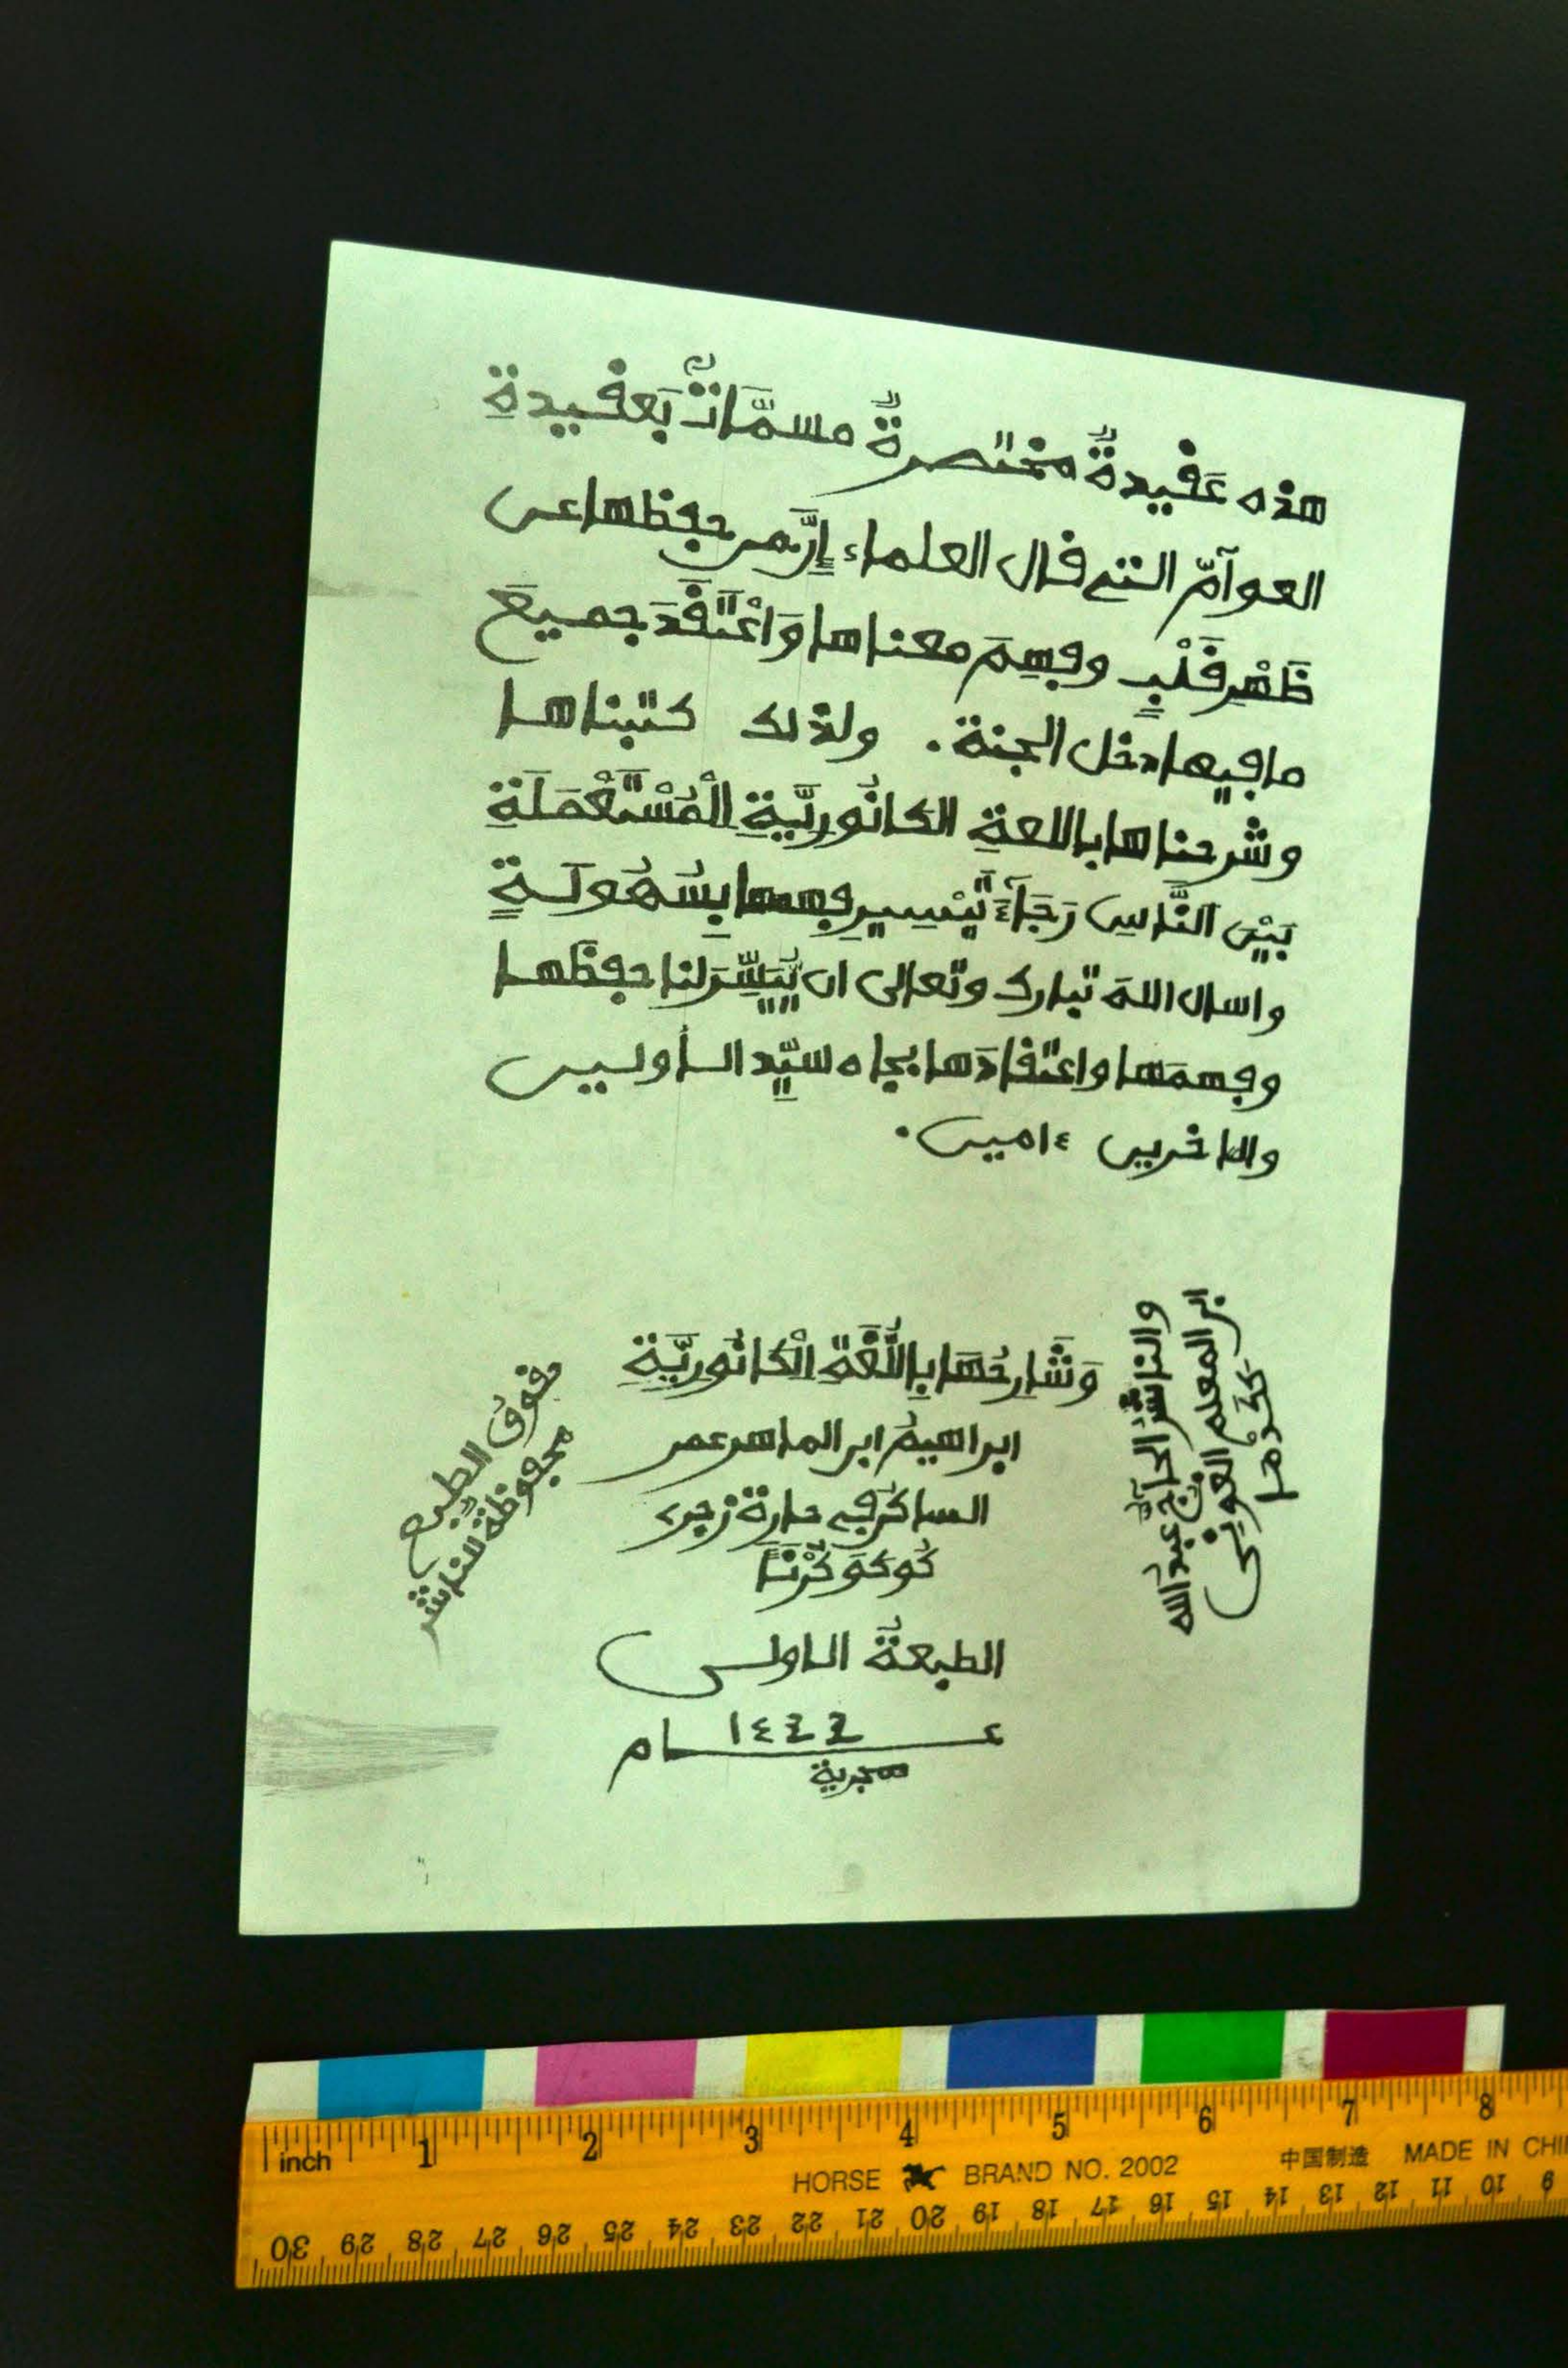 هذه عَفْيدةٌ مختصرةٌ مسمَّاتٌ بَعفيدةِ
العوآمّ التي فال العلماء إِنَّ من حفظها عن
ظَهْرِ فَلْبٍ وفهِمَ معناها وَاعْتَفَدَ جميعَ
ما فيها دخل الجنة . ولذلك كتبناها
وشرحناها باللعةِ الكانُورِيَّةِ الْمُسْتَعْمَلَةِ
بَيْنَ النَّاسِ رَجَآءَ تَيْسِيرِ فهمها بِسُهُولَةٍ
واسال اللهَ تبارك وتعالى ان يُّيَسِّرَ لنا حفظها
وفهمَها واعتفادَها بجاه سيِّد الأولين
والاخرين ءامين .
وَشَارِحُهَا بِاللُّغَةِ الْكَانُورِيَّةِ
ابراهيمُ ابن الماهر عمر
الساكن في حارة زجر
كُوكَوَ كُرْنَا
والناشر الحآج عبد الله
ابن المعلم العوني
حفوق الطبع
محفوظةٌ للناشر
الطبعةُ الاولى
عــام ١٤٤٢
هجرية